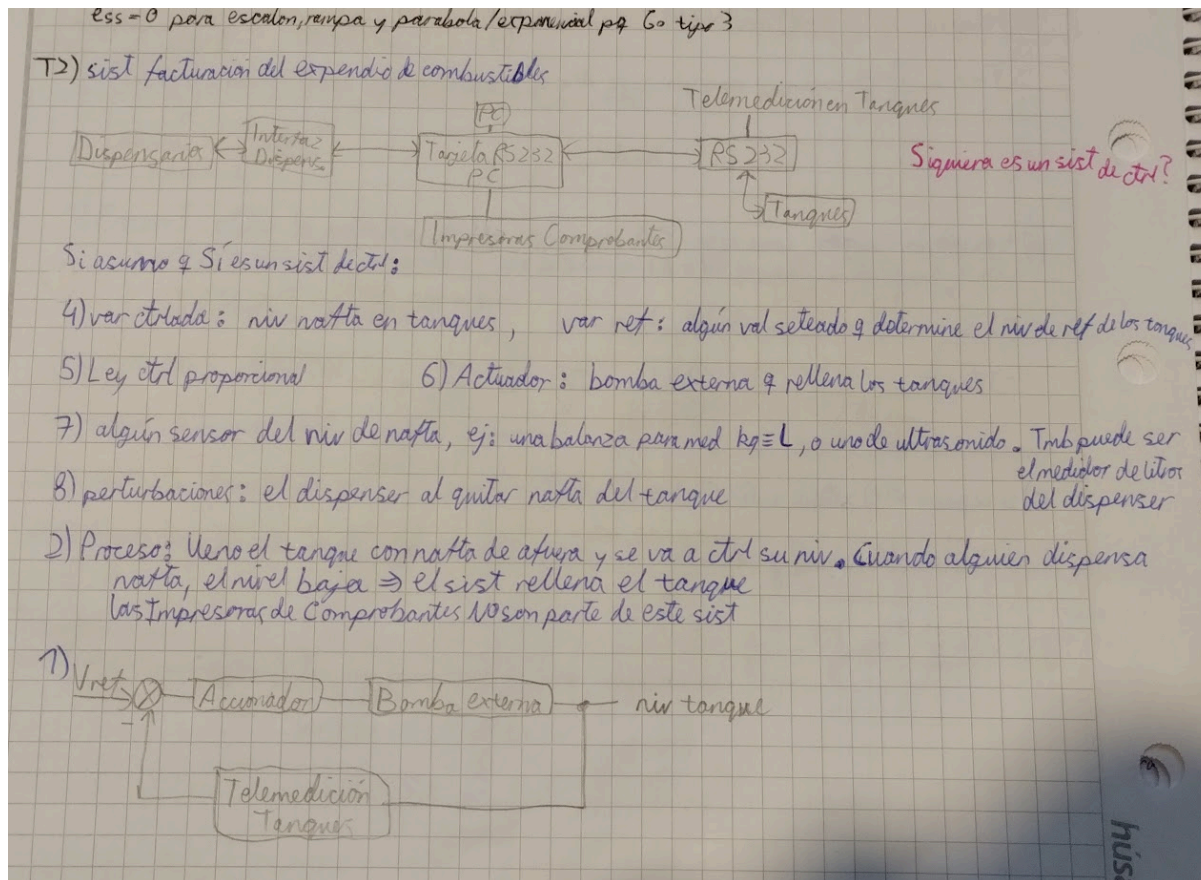 ess=0 para escalon, rampa y parabola/exponencial pq Go tipo 3
T2) sist facturacion del expendio de combustibles
Telemedición en Tanques
PC
Dispensarios Interfaz Tarjeta RS232 RS232
Dispens PC
Siquiera es un sist de ctrl?
Tanques
Impresoras Comprobantes
Si asumo q Sí es un sist de ctrl:
4) var ctrlada: niv nafta en tanques, var ref: algún val seteado q determine el niv de ref de los tanques
5) Ley ctrl proporcional 6) Actuador: bomba externa q rellena los tanques
7) algún sensor del niv de nafta, ej: una balanza para med kg≡L, o uno de ultrasonido. Tmb puede ser
el medidor de litros
del dispenser
8) perturbaciones: el dispenser al quitar nafta del tanque
2) Proceso: lleno el tanque con nafta de afuera y se va a ctrl su niv. Cuando alguien dispensa
nafta, el nivel baja ⇒ el sist rellena el tanque
las Impresoras de Comprobantes NO son parte de este sist
1)
Vref Accionador Bomba externa niv tanque
-
Telemedición
Tanques
húsa